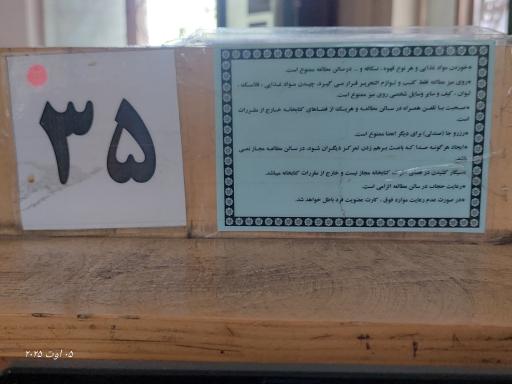 ۳۵
*خوردن مواد غذایی و هر نوع قهوه ، نسکافه و .. در سالن مطالعه ممنوع است.
*روی میز مطالعه فقط کتب و لوازم التحریر قرار می گیرد. چیدن مواد غذایی ، فلاسک ،
لیوان ، کیف و سایر وسایل شخصی روی میز ممنوع است.
*صحبت با تلفن همراه در سالن مطالعه و هریک از فضاهای کتابخانه خارج از مقررات
است.
*رزرو جا (صندلی) برای دیگر اعضا ممنوع است.
*ایجاد هر گونه صدا که باعث برهم زدن تمرکز دیگران شود، در سالن مطالعه مجاز نمی
باشد.
*سیگار کشیدن در کتابخانه مجاز نیست و خارج از مقررات کتابخانه میباشد.
*رعایت حجاب در سالن مطالعه الزامی است.
*در صورت عدم رعایت موارد فوق ، کارت عضویت فرد باطل خواهد شد.
۰۵ اوت ۲۰۲۵